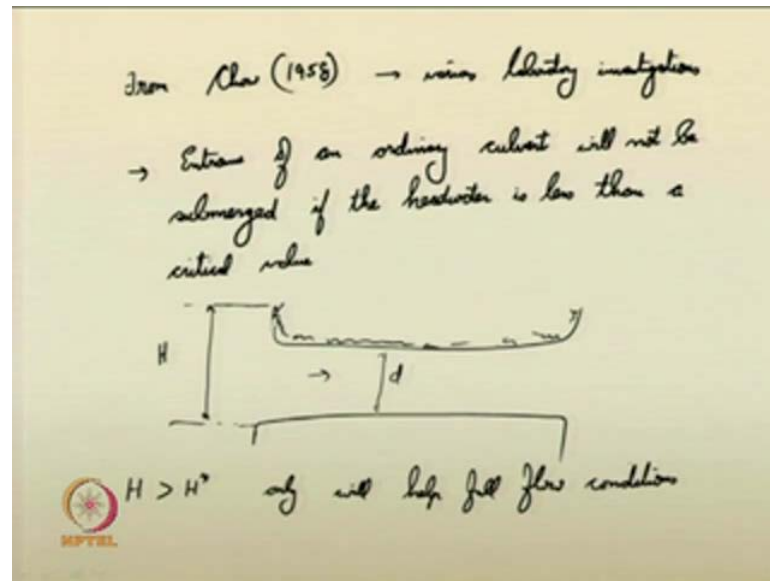 From Chow (1958) → various laboratory investigations
→ Entrance of an ordinary culvert will not be
submerged if the headwater is less than a
critical value
H
→
d
H > H* only will help full flow conditions
NPTEL